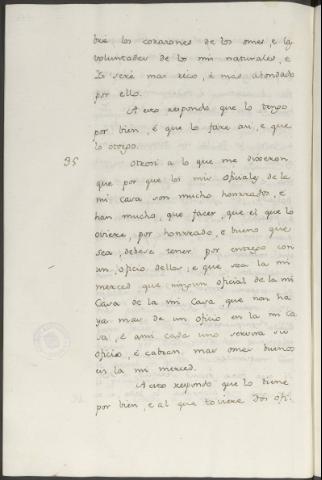 bré los corazones de los omes, e las
voluntades de los mis naturales, e
Io seré mas rico, é mas abondado
por ello.
A esto respondo que lo tengo
por bien, é que lo faré asi, e que
lo otorgo.
35 Otrosi a lo que me dixeron
que por que los mis oficiales de la
mi casa son mucho honrrados, e
han mucho, que facer, que el que lo
oviere, por honrrado, e bueno que
sea, debese tener por entrego con
un oficio dellos, e que sea la mi
merced que ningun oficial de la mi
Casa de la mi Casa, que non ha
ya mas de un oficio en la mi Ca
sa, é ami cada uno servira su
oficio, é cabran, mas omes buenos,
en la mi merced.
A esto respondo que lo tiene
por bien, e al que toviere dos ofi-